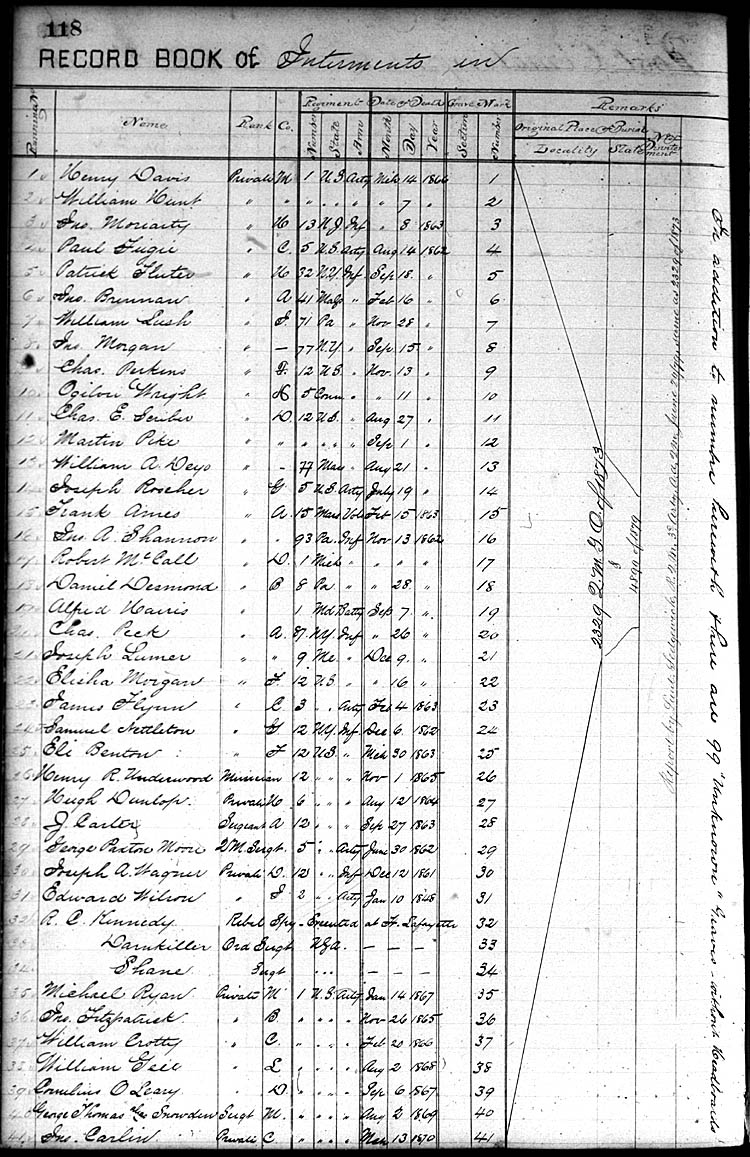 118
RECORD BOOK of Interments in
Running No. Name Rank Co. Regiment Number State Arm Date of Death Month Day Year Grave Mark Section Number Remarks
Original Place of Burial No. of
Locality State
1 Henry Davis Private M 1 U.S. Arty Mch 14 1866 1
2 William Hunt " " " " " " 7 " 2
3 Jno. Moriarty " H 13 N.J. Inf " 8 1863 3
4 Paul " C. 5 U.S. Arty Aug 14 1862 4
5 Patrick " H 32 N.Y. Inf Sep 18 " 5
6 Jno. Brennan " A 41 " Feb 16 " 6
7 William Lush " I. 71 Pa " Nov 28 " 7
8 Jno. Morgan " — 77 N.Y. " Sep 15 " 8
9 Chas. Perkins " 12 U.S. " Nov. 13 " 9
10 Wright " H 5 Conn " " 11 " 10
11 Chas. E. " D. 12 U.S. " Aug 27 " 11
12 Martin Pike " " " " " Sep 1 " 12
13 William A. Deyo " - 77 Mass " Aug 21 " 13
14 Joseph Roscher " G 5 U.S. Arty July 19 " 14
15 Frank Ames " A. 15 Mass Vols Feb 15 1863 15
16 Jno. A. Shannon " " 93 Pa. Inf Nov 13 1862 16
17 Robert McCall " D. 1 Mich " " " " 17
18 Daniel Desmond " B 8 Pa. " " 28 " 18
19 Alfred Harris " 1 Md. Batty Sep 7 " 19
20 Chas. Peek " A. 87 N.Y. Inf " 26 " 20
21 Joseph " " 9 Me. " Dec 9 " 21
22 Elisha Morgan " F. 12 U.S. " " 16 " 22
23 James Flynn " C 3 " Arty Feb 4 1863 23
24 Samuel Nettleton " G 12 N.Y. Inf Dec 6 1862 24
25 Eli Benton " F 12 U.S. " Mch 30 1863 25
26 Henry R. Underwood Musician 12 " " Nov 1 1865 26
27 Hugh Dunlop Private H 6 " " Aug 12 1864 27
28 J. Carter Sergeant A 12 " " Sep 27 1863 28
29 George Paxton Moore Q M. Sergt " 5 " Arty June 30 1862 29
30 Joseph A. Wagner Private D. 12 " Inf Dec 12 1861 30
31 Edward Wilson " I 2 " Arty Jan 10 1848 31
32 R. C. Kennedy Rebel Spy - Executed at Ft. Lafayette 32
33 Darnkiller Ord Sergt — — — 33
34 Shane Sergt " " — — — 34
35 Michael Ryan Private M 1 U.S. Arty Jan 14 1867 35
36 Jno. Fitzpatrick " B. " " " Nov 26 1865 36
37 William Crotty " C. " " " Feb 20 1866 37
38 William " L " " " Aug 2 1868 38
39 Cornelius O'Leary " D " " " Sep 6 1867 39
40 George Thomas Snowden Sergt M. " " " Aug 2 1869 40
41 Jno. Carlin Private C. " " " Mch 13 1870 41
2329 Q.M.G.O. of 1873
&
4890 of 1879
Report by Lieut. Sedgwick R.Q.M. 3d Arty June same as 2329 of 1873
In addition to number herewith there are 99 "Unknown" Graves without headboards